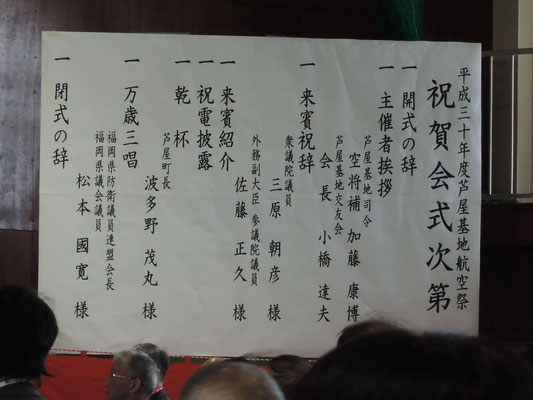 平成三十年度芦屋基地航空祭
祝賀会式次第
一 開式の辞
一 主催者挨拶
芦屋基地司令
空将補 加藤 康博
芦屋基地交友会
会長 小橋 達夫
一 来賓祝辞
衆議院議員
三原 朝彦 様
外務副大臣 参議院議員
佐藤 正久 様
一 来賓紹介
一 祝電披露
一 乾杯
芦屋町長
波多野 茂丸 様
一 万歳三唱
福岡県防衛議員連盟会長
福岡県議会議員
松本 國寛 様
一 閉式の辞